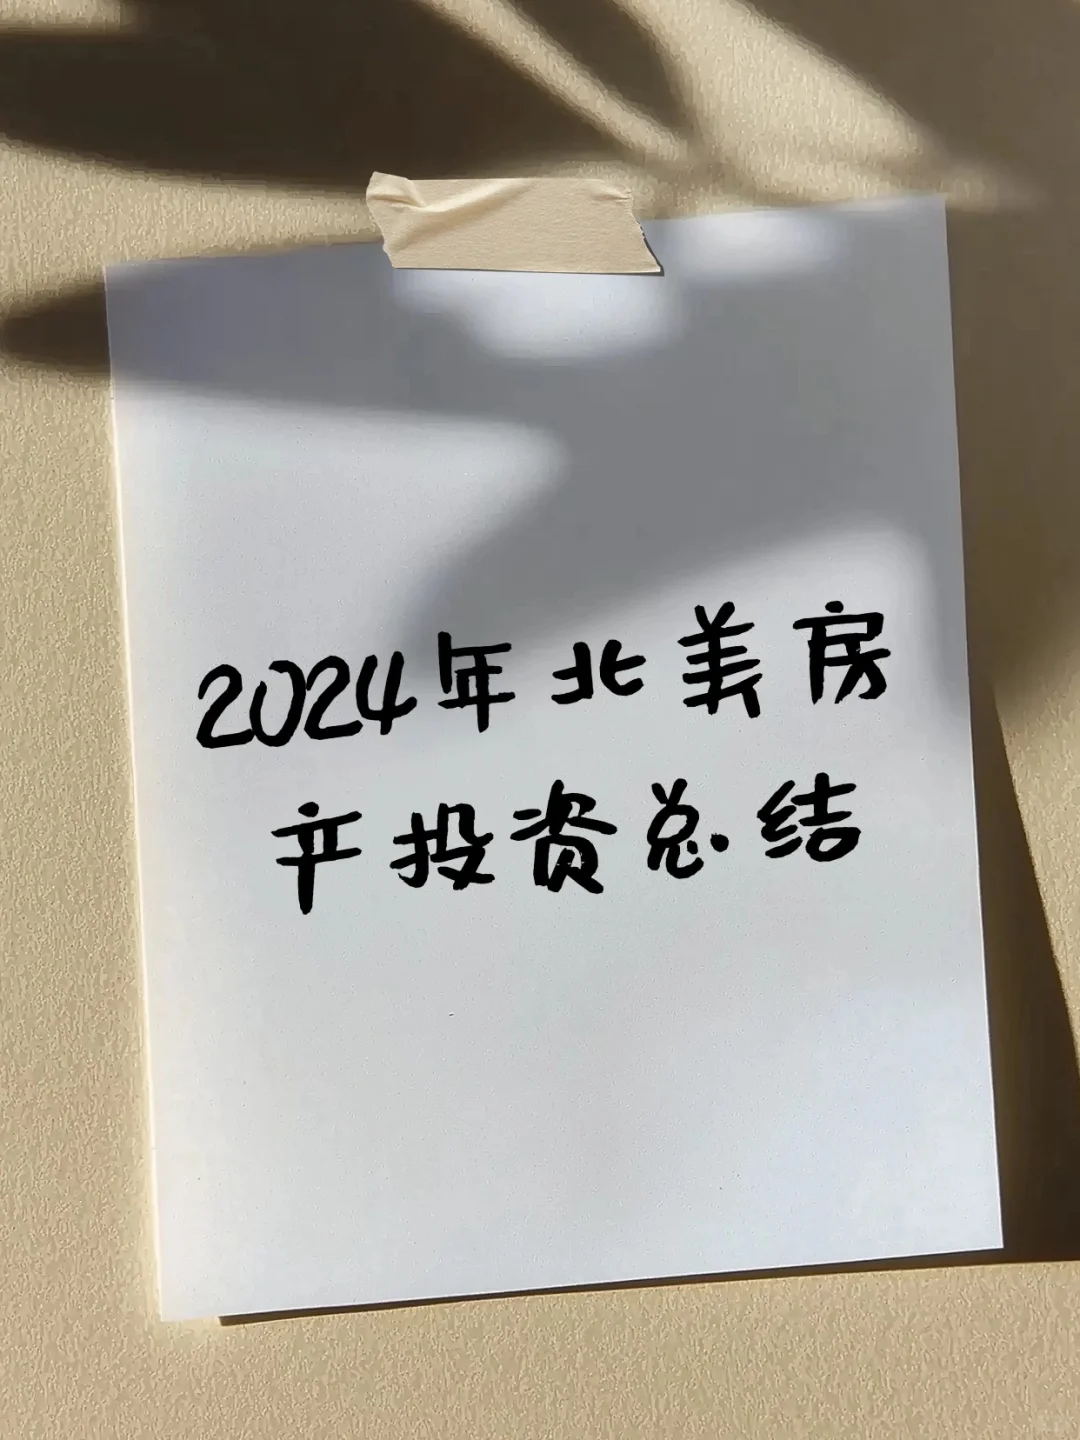 2024年北美房
产投资总结